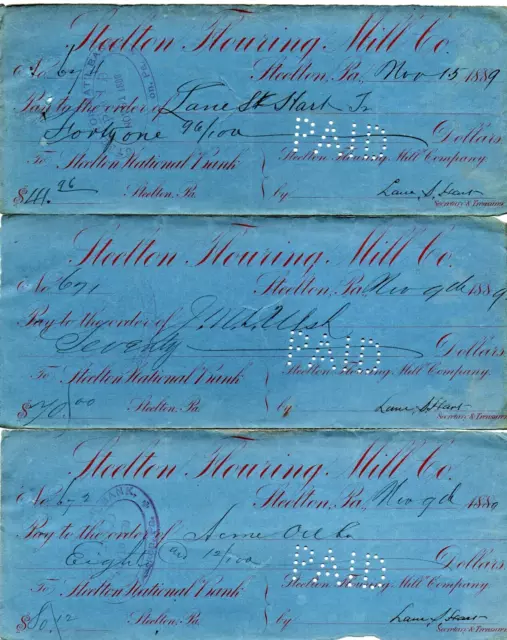 Steelton Flouring Mill Co.
No. 67
Steelton, Pa., Nov 15 1889
Pay to the order of Lane S. Hart Tr
Forty one 96/100 Dollars
PAID
To Steelton National Bank
Steelton Flouring Mill Company
$41.96 Steelton, Pa. by Lane S. Hart
Secretary & Treasurer
Steelton Flouring Mill Co.
No. 671
Steelton, Pa., Nov 9th 1889
Pay to the order of J.
Seventy Dollars
PAID
To Steelton National Bank
Steelton Flouring Mill Company
$70.00 Steelton, Pa. by Lane S. Hart
Secretary & Treasurer
Steelton Flouring Mill Co.
BANK
No. 672
Steelton, Pa., Nov 9th 1889
Pay to the order of Acme Oil Co
Eighty and 12/100 Dollars
PAID
To Steelton National Bank
Steelton Flouring Mill Company
$80.12 Steelton, Pa. by Lane S. Hart
Secretary & Treasurer